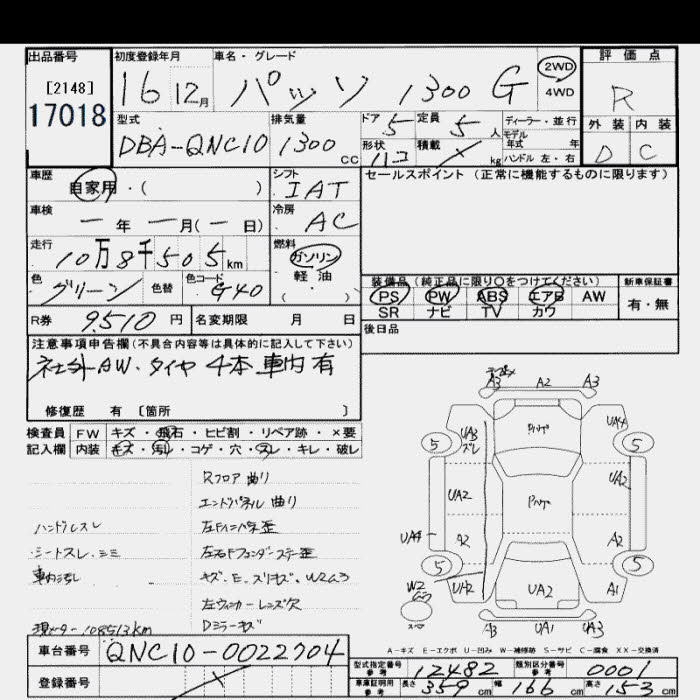 出品番号 初度登録年月 車名・グレード 評価点
[2148] 16 12月 パッソ 1300 G 2WD 4WD R
17018
型式 排気量 ドア 定員 ディーラー・並行 外装 内装
DBA-QNC10 1300cc 5 5人 モデル年式 年 D C
形状 ハコ 積載 kg ハンドル 左・右
車歴 シフト セールスポイント (正常に機能するものに限ります)
自家用・( ) IAT
車検 冷房
ー年ー月(ー日) AC
走行 燃料
10万8千505km ガソリン
軽油
( )
色 色替 色コード 装備品 (純正品に限り○をつけてください) 新車保証書
グリーン G40 PS PW ABS エアB AW 有・無
SR ナビ TV カワ
R券 9,510円 名変期限 月 日 後日品
注意事項申告欄(不具合内容等は具体的に記入して下さい)
社外AW.タイヤ 4本 車内有
修復歴 有 [箇所 ]
検査員 FW キズ・飛石・ヒビ割・リペア跡・×要
記入欄 内装 キズ・汚レ・コゲ・穴・スレ・キレ・破レ
Rフロア 曲り
エンドパネル 曲り
ハンドルスレ
シートスレ.シミ
車内汚し
現メーター 108513km
左ウィンカーレンズ欠
Dミラーキズ
A3 A2 A3
UA3 ズレ UA4
5 5
UA2 UA2
UA4 A2 A2
5 5
W2 UA2 UA2 A1
A3 UA1 UA3
A-キズ E-エクボ U-凹み W-補修跡 S-サビ C-腐食 XX-交換済
車台番号 QNC10-0022704
登録番号
型式指定番号 参考 12482 類別区分番号 参考 0001
車庫証明用 参考 長さ 359cm 幅 166cm 高さ 153cm